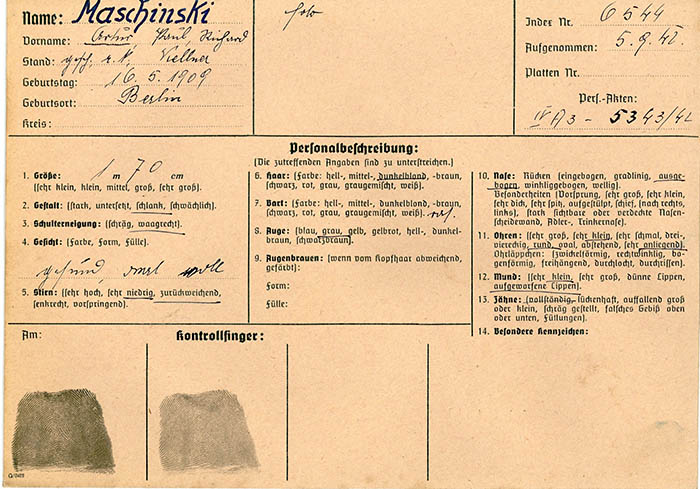 Name: Maschinski
Vorname: Artur, Paul, Richard
Stand: gesch, Kellner
Geburtstag: 16.5.1909
Geburtsort: Berlin
Kreis:
Index Nr. 6544
Aufgenommen: 5.9.42.
Platten Nr.
Pers.-Akten:
IV A3 - 5343/42
Personalbeschreibung:
(Die zutreffenden Angaben sind zu unterstreichen.)
1. Größe: 1 m 70 cm
(sehr klein, klein, mittel, groß, sehr groß).
2. Gestalt: (stark, untersetzt, schlank, schwächlich).
3. Schulterneigung: (schräg, waagrecht).
4. Gesicht: (Farbe, Form, Fülle).
gesund, oval, voll
5. Stirn: (sehr hoch, sehr niedrig, zurückweichend,
senkrecht, vorspringend).
6. Haar: (Farbe: hell-, mittel-, dunkelblond, -braun,
schwarz, rot, grau, graugemischt, weiß).
7. Bart: (Farbe: hell-, mittel-, dunkelblond, -braun,
schwarz, rot, grau, graugemischt, weiß). ras.
8. Auge: (blau, grau, gelb, gelbrot, hell-, dunkel-
braun, schwarzbraun).
9. Augenbrauen: (wenn vom Kopfhaar abweichend,
gefärbt):
Form:
Fülle:
10. Nase: Rücken (eingebogen, gradlinig, ausge-
bogen, winkliggebogen, wellig).
Besonderheiten (Vorsprung, sehr groß, sehr klein,
sehr dick, sehr spitz, aufgestülpt, schief, (nach rechts,
links), stark sichtbare oder verdeckte Nasen-
scheidewand, Adler-, Trinkernase).
11. Ohren: (sehr groß, sehr klein, sehr schmal, drei-,
viereckig, rund, oval, abstehend, sehr anliegend).
Ohrläppchen: (zwickelförmig, rechtwinklig, bo-
genförmig, freihängend, durchlocht, durchrissen).
12. Mund: (sehr klein, sehr groß, dünne Lippen,
aufgeworfene Lippen).
13. Zähne: (vollständig, lückenhaft, auffallend groß
oder klein, schräg gestellt, falsches Gebiß oben
oder unten, Füllungen).
14. Besondere Kennzeichen:
Am:
Kontrollfinger: